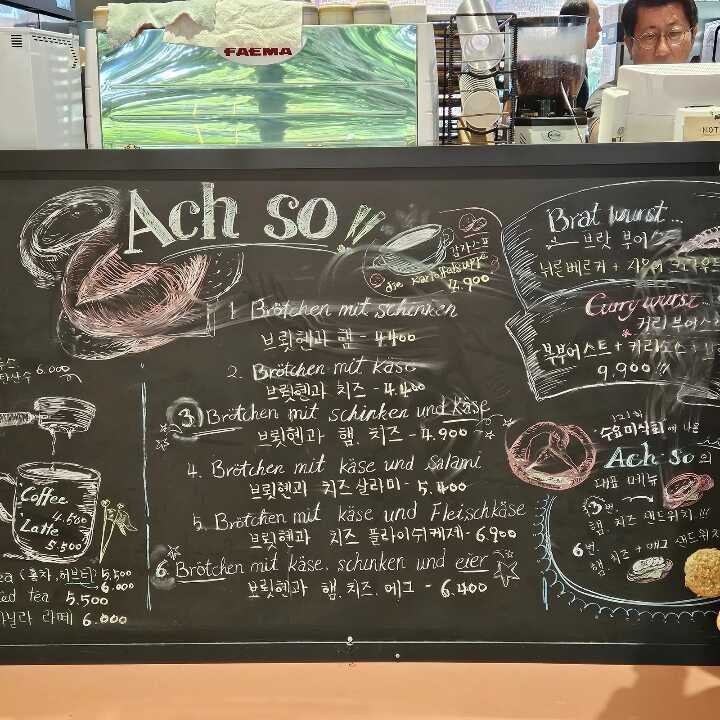 FAEMA
NOT
Ach so
감자스프
die Kartoffelsuppe
4.900
1. Brötchen mit schinken
브릿헨과 햄 - 4400
2. Brötchen mit käse
브릿헨과 치즈 - 4.400
3. Brötchen mit schinken und käse
브릿헨과 햄. 치즈 - 4.900
4. Brötchen mit käse und salami
브릿헨과 치즈 살라미 - 5.400
5. Brötchen mit käse und Fleischkäse
브릿헨과 치즈 플라이쉬케제 - 6.900
6. Brötchen mit käse, schinken und eier
브릿헨과 햄. 치즈. 에그 - 6.400
6.000
Coffee
4.500
Latte
5.500
5.500
6.000
tea 5.500
라떼 6.000
Brat wurst...
브랏 부어스
Curry wurst...
커리부어스
9.900
수요미식회에 나온
Ach so의
대표 메뉴
3번
햄, 치즈 샌드위치!!!
6번
햄, 치즈 + 에그 샌드위치